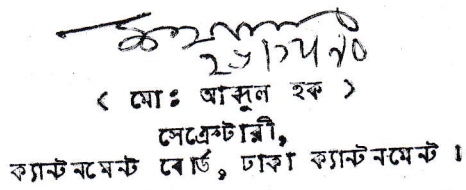 ( মোঃ আব্দুল হক )
সেক্রেটারী,
ক্যান্টনমেন্ট বোর্ড, ঢাকা ক্যান্টনমেন্ট ।